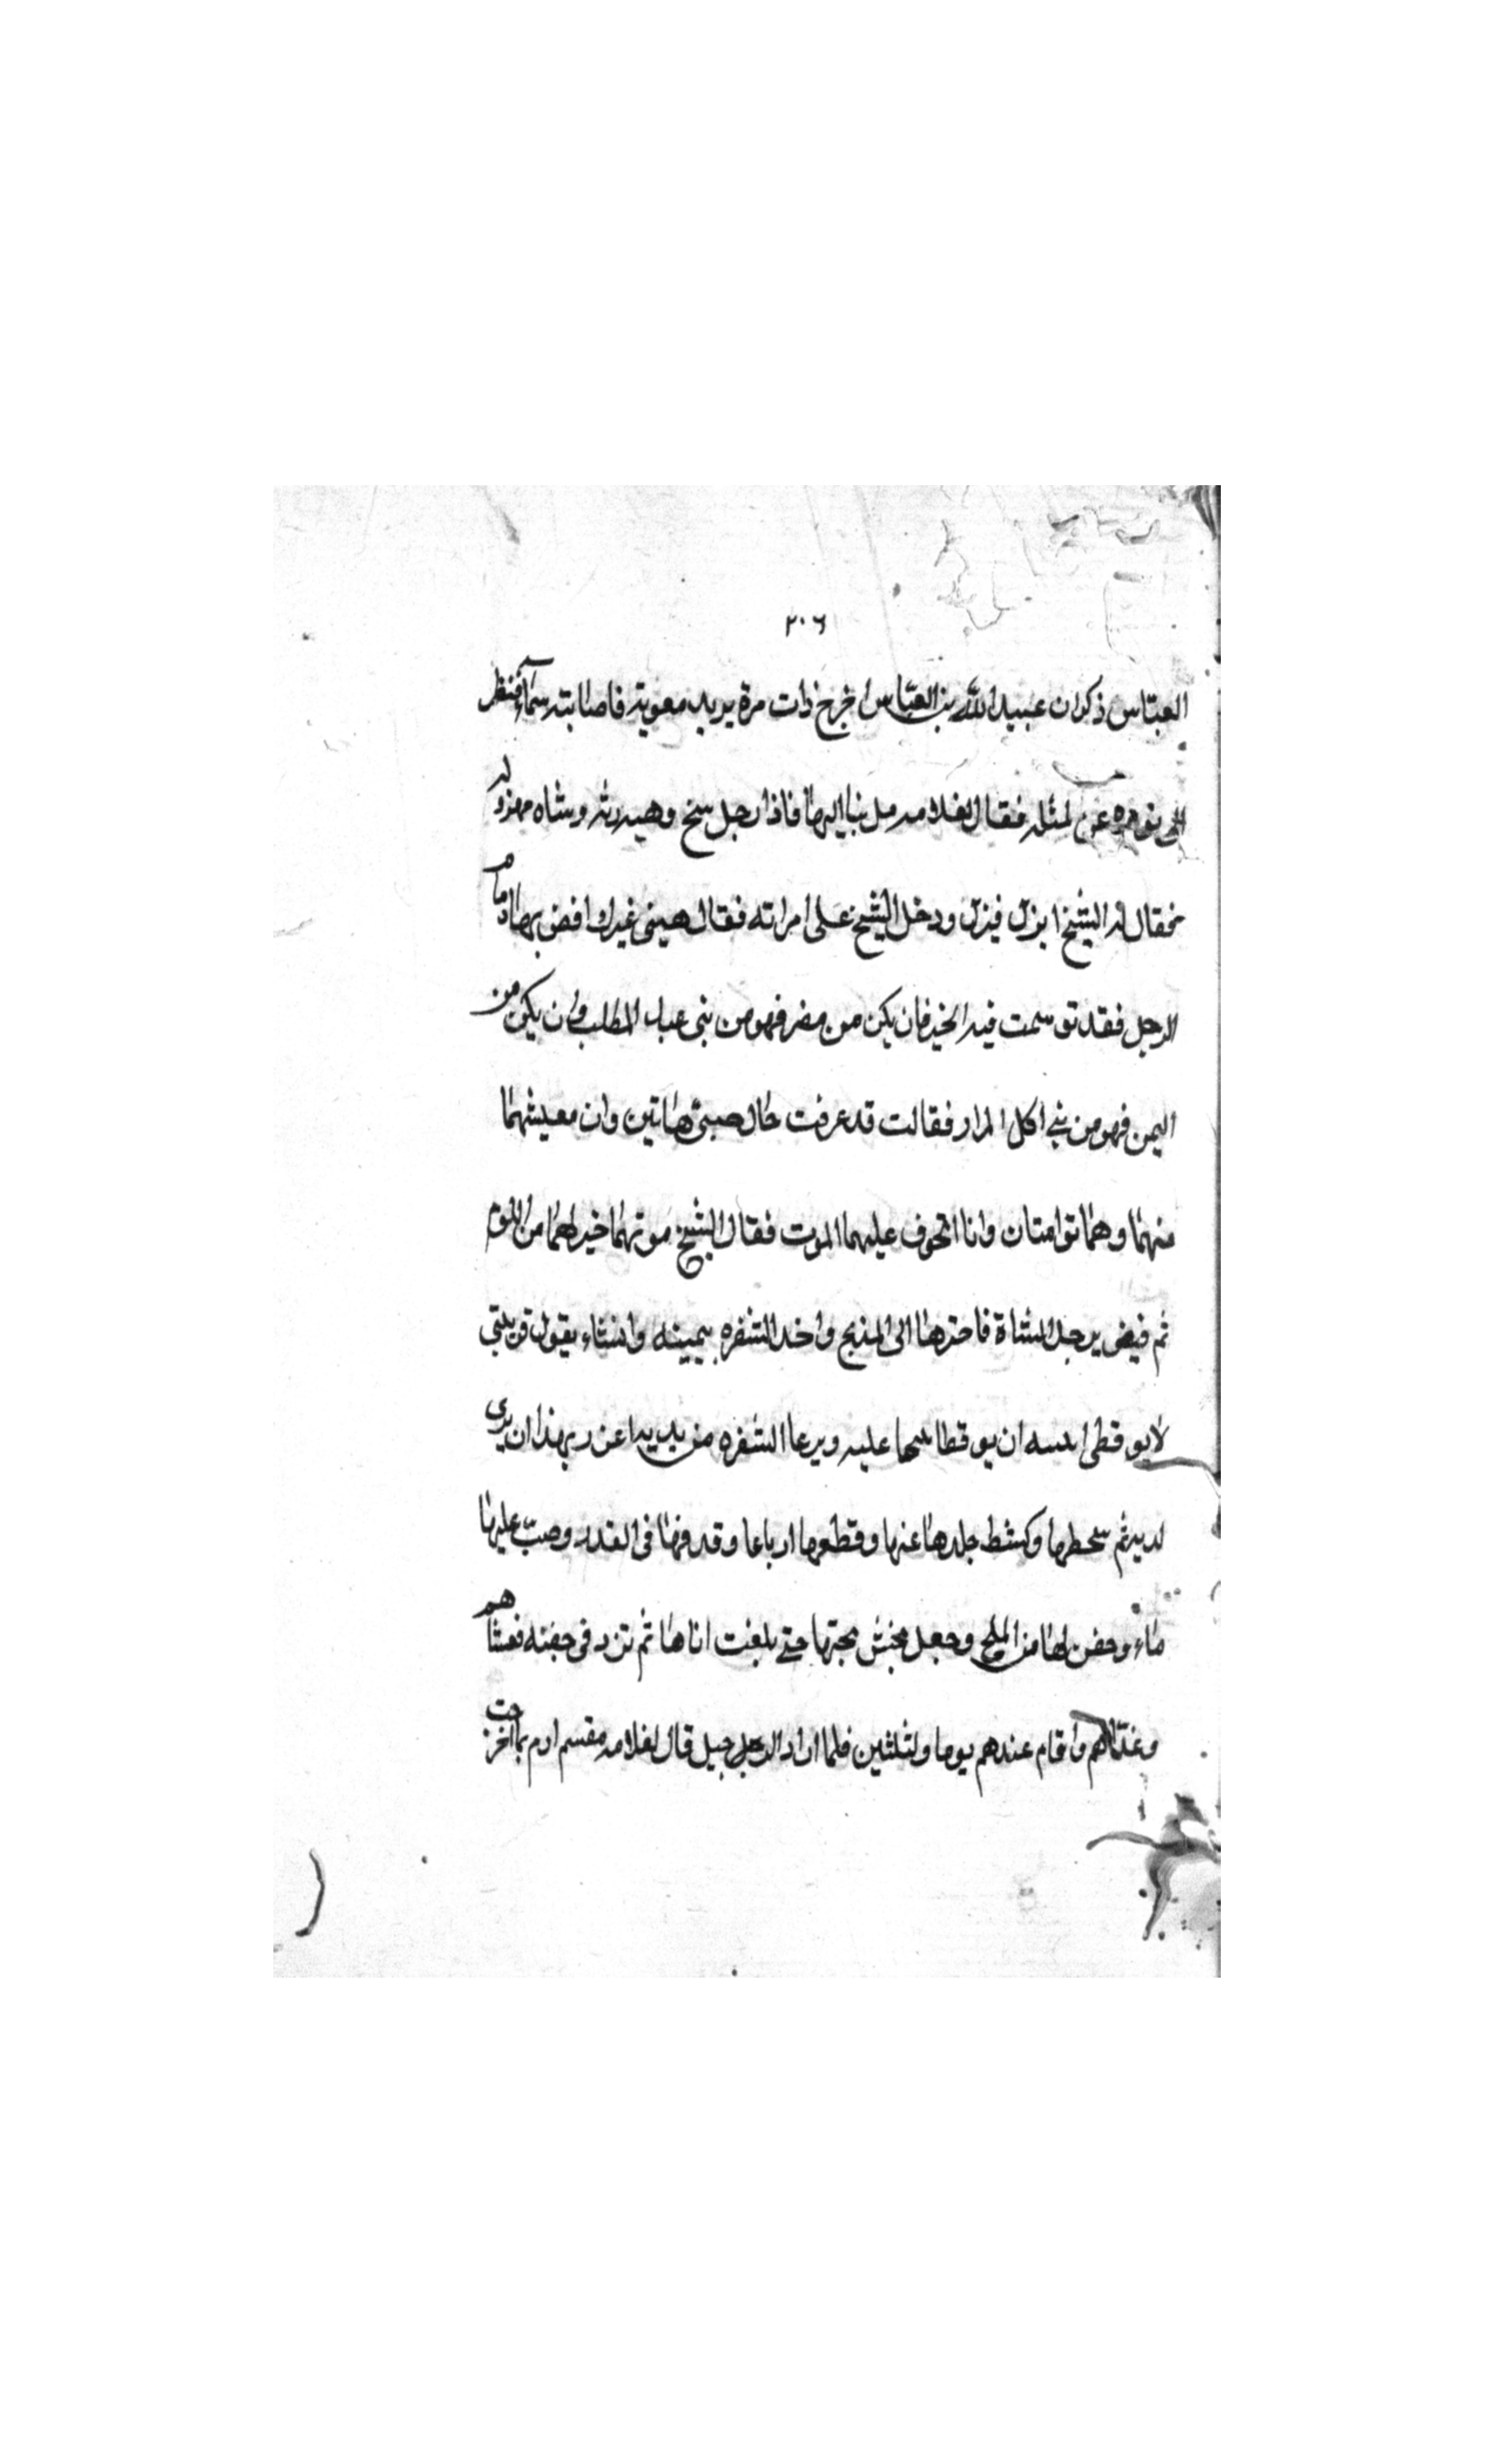 ٢٠٦
العباس ذكر ان عبيد الله بن العباس خرج ذات مرة يريد معوية فاصابته سماء فنظر
الى نويره عن لمثله فقال لغلامه مل بنا اليها فاذا رجل شيخ وهيه رثه وشاه مهزوله
فقال له الشيخ انزل فنزل ودخل الشيخ على امراته فقال هيئى غيرك اقض بها ذمام
الرجل فقد توسمت فيه الخير فان يكن من مضر فهو من بنى عبد المطلب وان يكن من
اليمن فهو من بنى اكل المرار فقالت قد عرفت حال صبيتى هاتين وان معيشتهما
منهما وهما توامتان وانا اتخوف عليهما الموت فقال الشيخ موتهما خير لهما من اللوم
ثم قبض برجل الشاة فاجترها الى المذبح واخد الشفره بيمينه وانشاء يقول قريتى
لا يوقطى ان يوقطا عليه وينزعا الشفره من يديه ان يرى
لديه ثم سحطها وكشط جلدها عنها وقطعها ارباعا وقدفها فى القدر وصب عليها
ماء وحفن لها من الملح وجعل يحتش تحتها حتى بلغت اناها ثم ثرد فى جفنه فعشاهم
وغداهم واقام عندهم يوما ولثلثين فلما اراد الرحيل قال لغلامه مقسم ارم بما اخرجت